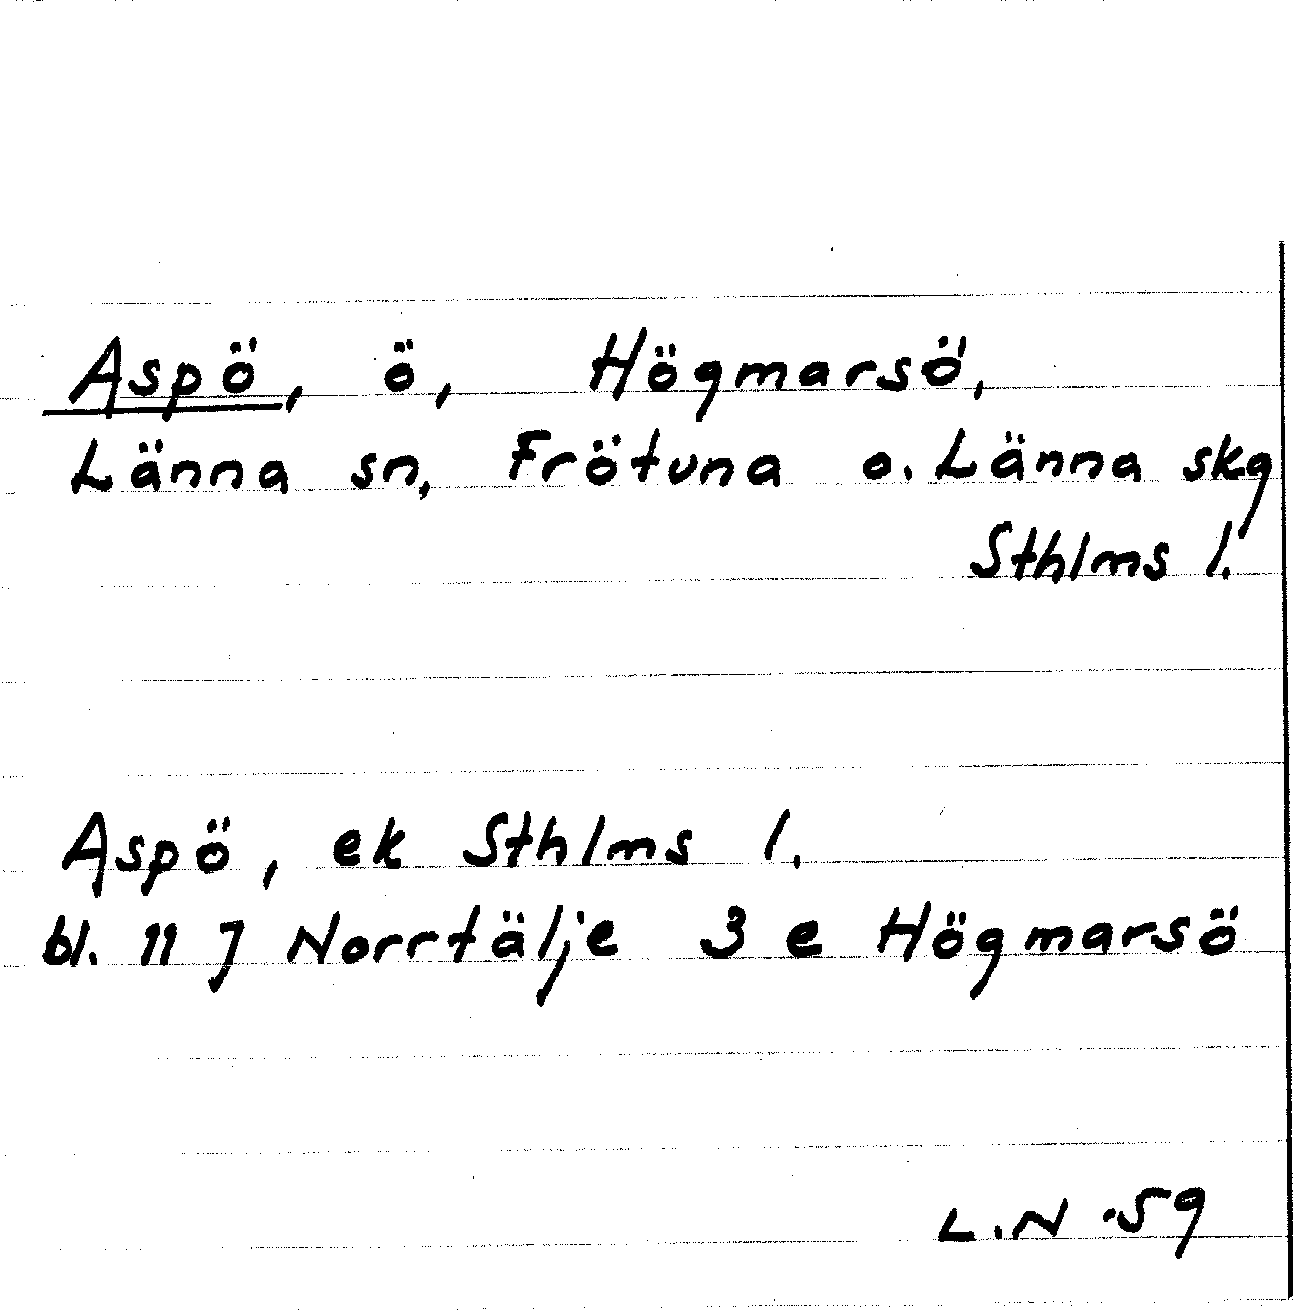 Aspö, ö, Högmarsö,
Länna sn, Frötuna o. Länna skg
Sthlms l.
Aspö, ek Sthlms l.
bl. 11 J Norrtälje 3 e Högmarsö
L.N .59